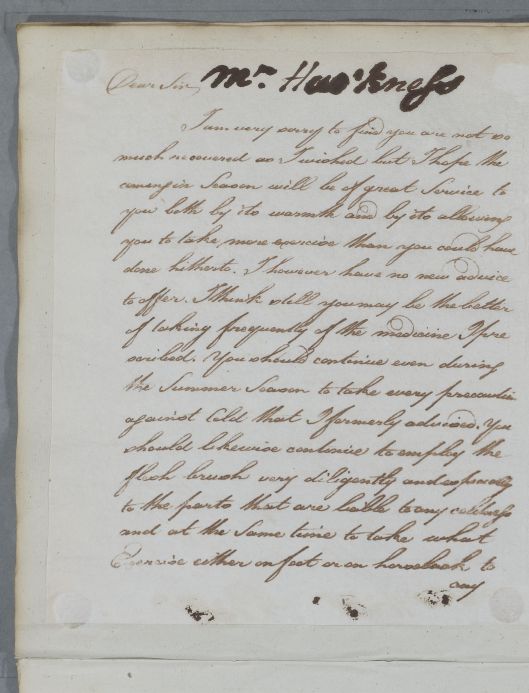 Dear Sir, Mr. Harkness
I am very sorry to find you are not so
much recovered as I wished but I hope the
comeing in Season will be of great Service to
you both by its warmth and by its allowing
you to take more exercise than you could have
done hitherto. I however have no new advice
to offer. I think still you may be the better
of taking frequently of the medicine I pre
scribed. You should continue even during
the Summer Season to take every precaution
against Cold that I formerly advised. You
should likewise continue to employ the
flesh brush very diligently and especially
to the parts that are liable to any coldness
and at the same time to take what
Exercise either on foot or on horseback to
any